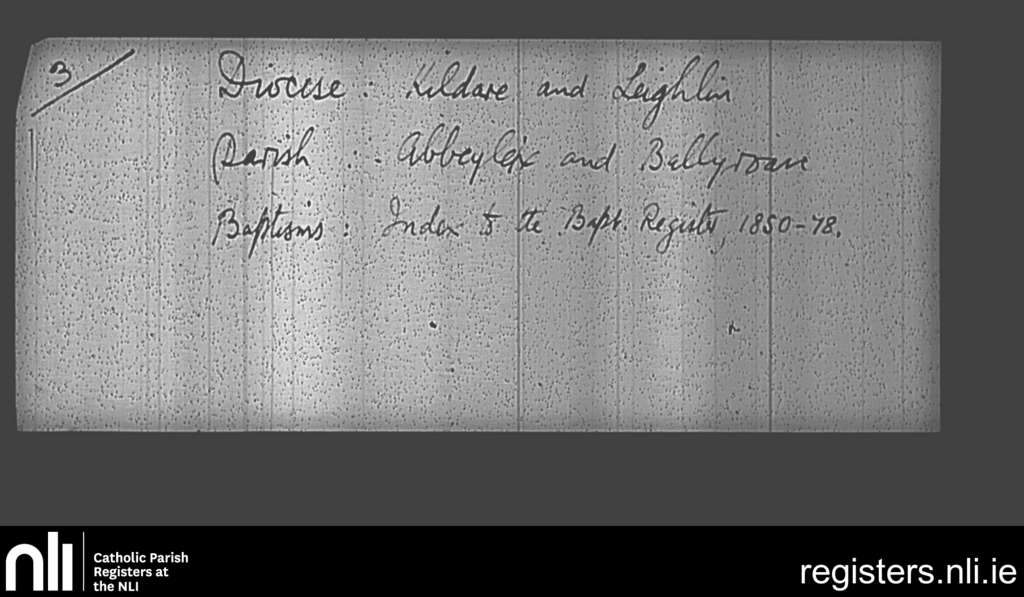 3/
Diocese : Kildare and Leighlin
Parish : - Abbeyleix and Ballyroan
Baptisms : Index to the Bapt. Register, 1850-78.
nli
Catholic Parish
Registers at
the NLI
registers.nli.ie